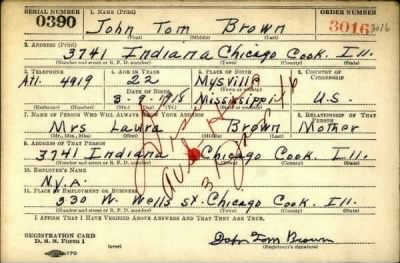 SERIAL NUMBER 1. NAME (Print) ORDER NUMBER
0390 John Tom Brown 3016 3016
(First) (Middle) (Last)
2. ADDRESS (Print)
3741 Indiana Chicago Cook. Ill.
(Number and street or R. F. D. number) (Town) (County) (State)
3. TELEPHONE 4. AGE IN YEARS 5. PLACE OF BIRTH 6. COUNTRY OF CITIZENSHIP
Atl. 4919 22
DATE OF BIRTH (Town or county)
Mississippi U.S.
(Exchange) (No.) (Mo.) (Day) (Yr.) (State or country)
7. NAME OF PERSON WHO WILL ALWAYS KNOW YOUR ADDRESS 8. RELATIONSHIP OF THAT PERSON
Mrs Laura Brown Mother
(Mr., Mrs., Miss) (First) (Middle) (Last)
9. ADDRESS OF THAT PERSON
3741 Indiana Chicago Cook. Ill.
(Number and street or R. F. D. number) (Town) (County) (State)
10. EMPLOYER'S NAME
N.Y.A.
11. PLACE OF EMPLOYMENT OR BUSINESS
330 W. Wells st. Chicago Cook. Ill.
(Number and street or R. F. D. number) (Town) (County) (State)
I AFFIRM THAT I HAVE VERIFIED ABOVE ANSWERS AND THAT THEY ARE TRUE.
REGISTRATION CARD
D. S. S. Form 1 (over) John Tom Brown
(Registrant's signature)